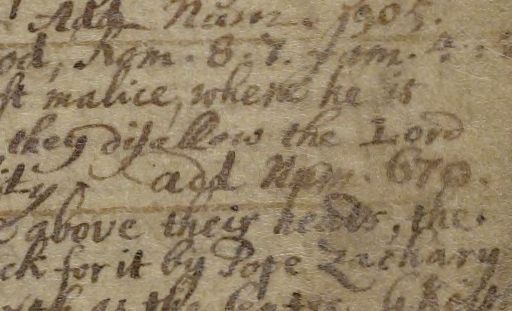 Add Num. 1905.
od, Rom. 8. 7. Jam. 4.
st malice, where he is
they disallow the Lord
ity, add Num. 670.
above their heads, the
ck for it by Pope Zachary